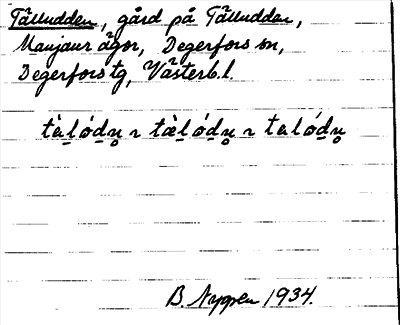 Tälludden, gård på Tälludden,
Manjaur ägor, Degerfors sn,
Degerfors tg, Västerb. l.
tàḷódṇ̥ ~ tæ̀ḷódṇ̥ ~ talódṇ̥
B. Nygren 1934.